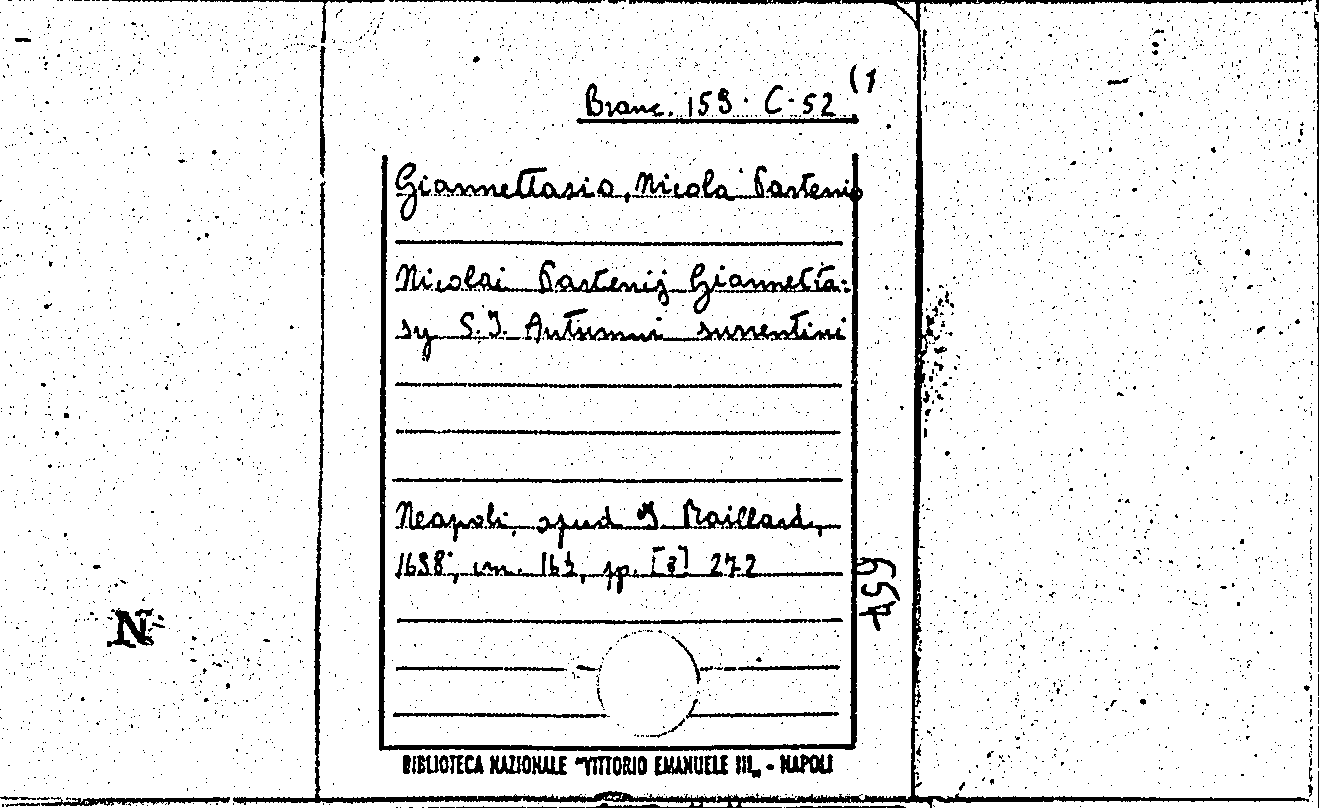 Branc. 159. C. 52 (1
Giannettasio, Nicola Partenio
Nicolai Partenij Giannetta:
sy S.J. Autumni surrentini
Neapoli, apud J Raillard,
1698, cm. 16½, pp. [8] 272
N
BIBLIOTECA NAZIONALE "VITTORIO EMANUELE III„ - NAPOLI